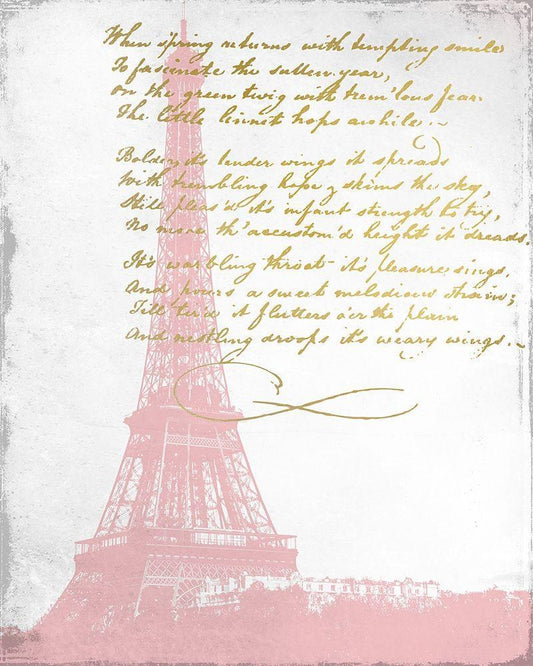 When spring returns with tempting smile
To fascinate the sullen year,
On the green twig with trem'lous fear
The little linnet hops awhile. ~
Bolder it's tender wings it spreads
With trembling hope, skims the sky,
Still pleas'd it's infant strength to try,
No more th' accustom'd height it dreads.
It's warbling throat it's pleasure sings,
And pours a sweet melodious strain;
Till tir'd it flutters o'er the plain
And nestling droops it's weary wings. ~